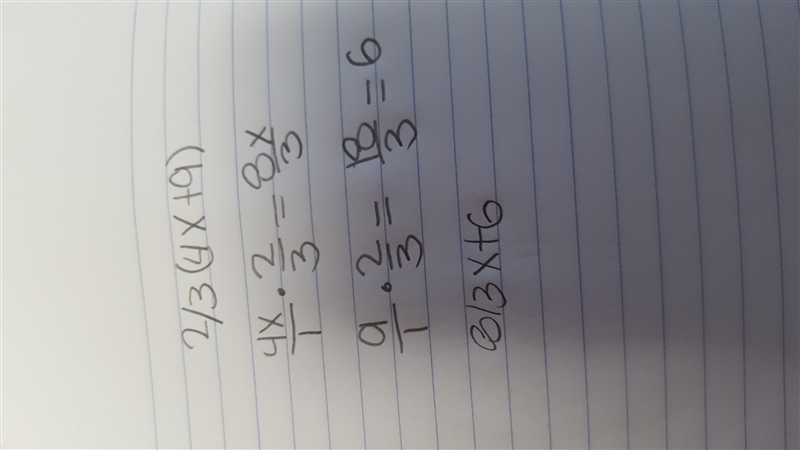 2/3(4x+9)
4x/1 · 2/3 = 8x/3
9/1 · 2/3 = 18/3 = 6
8/3x+6